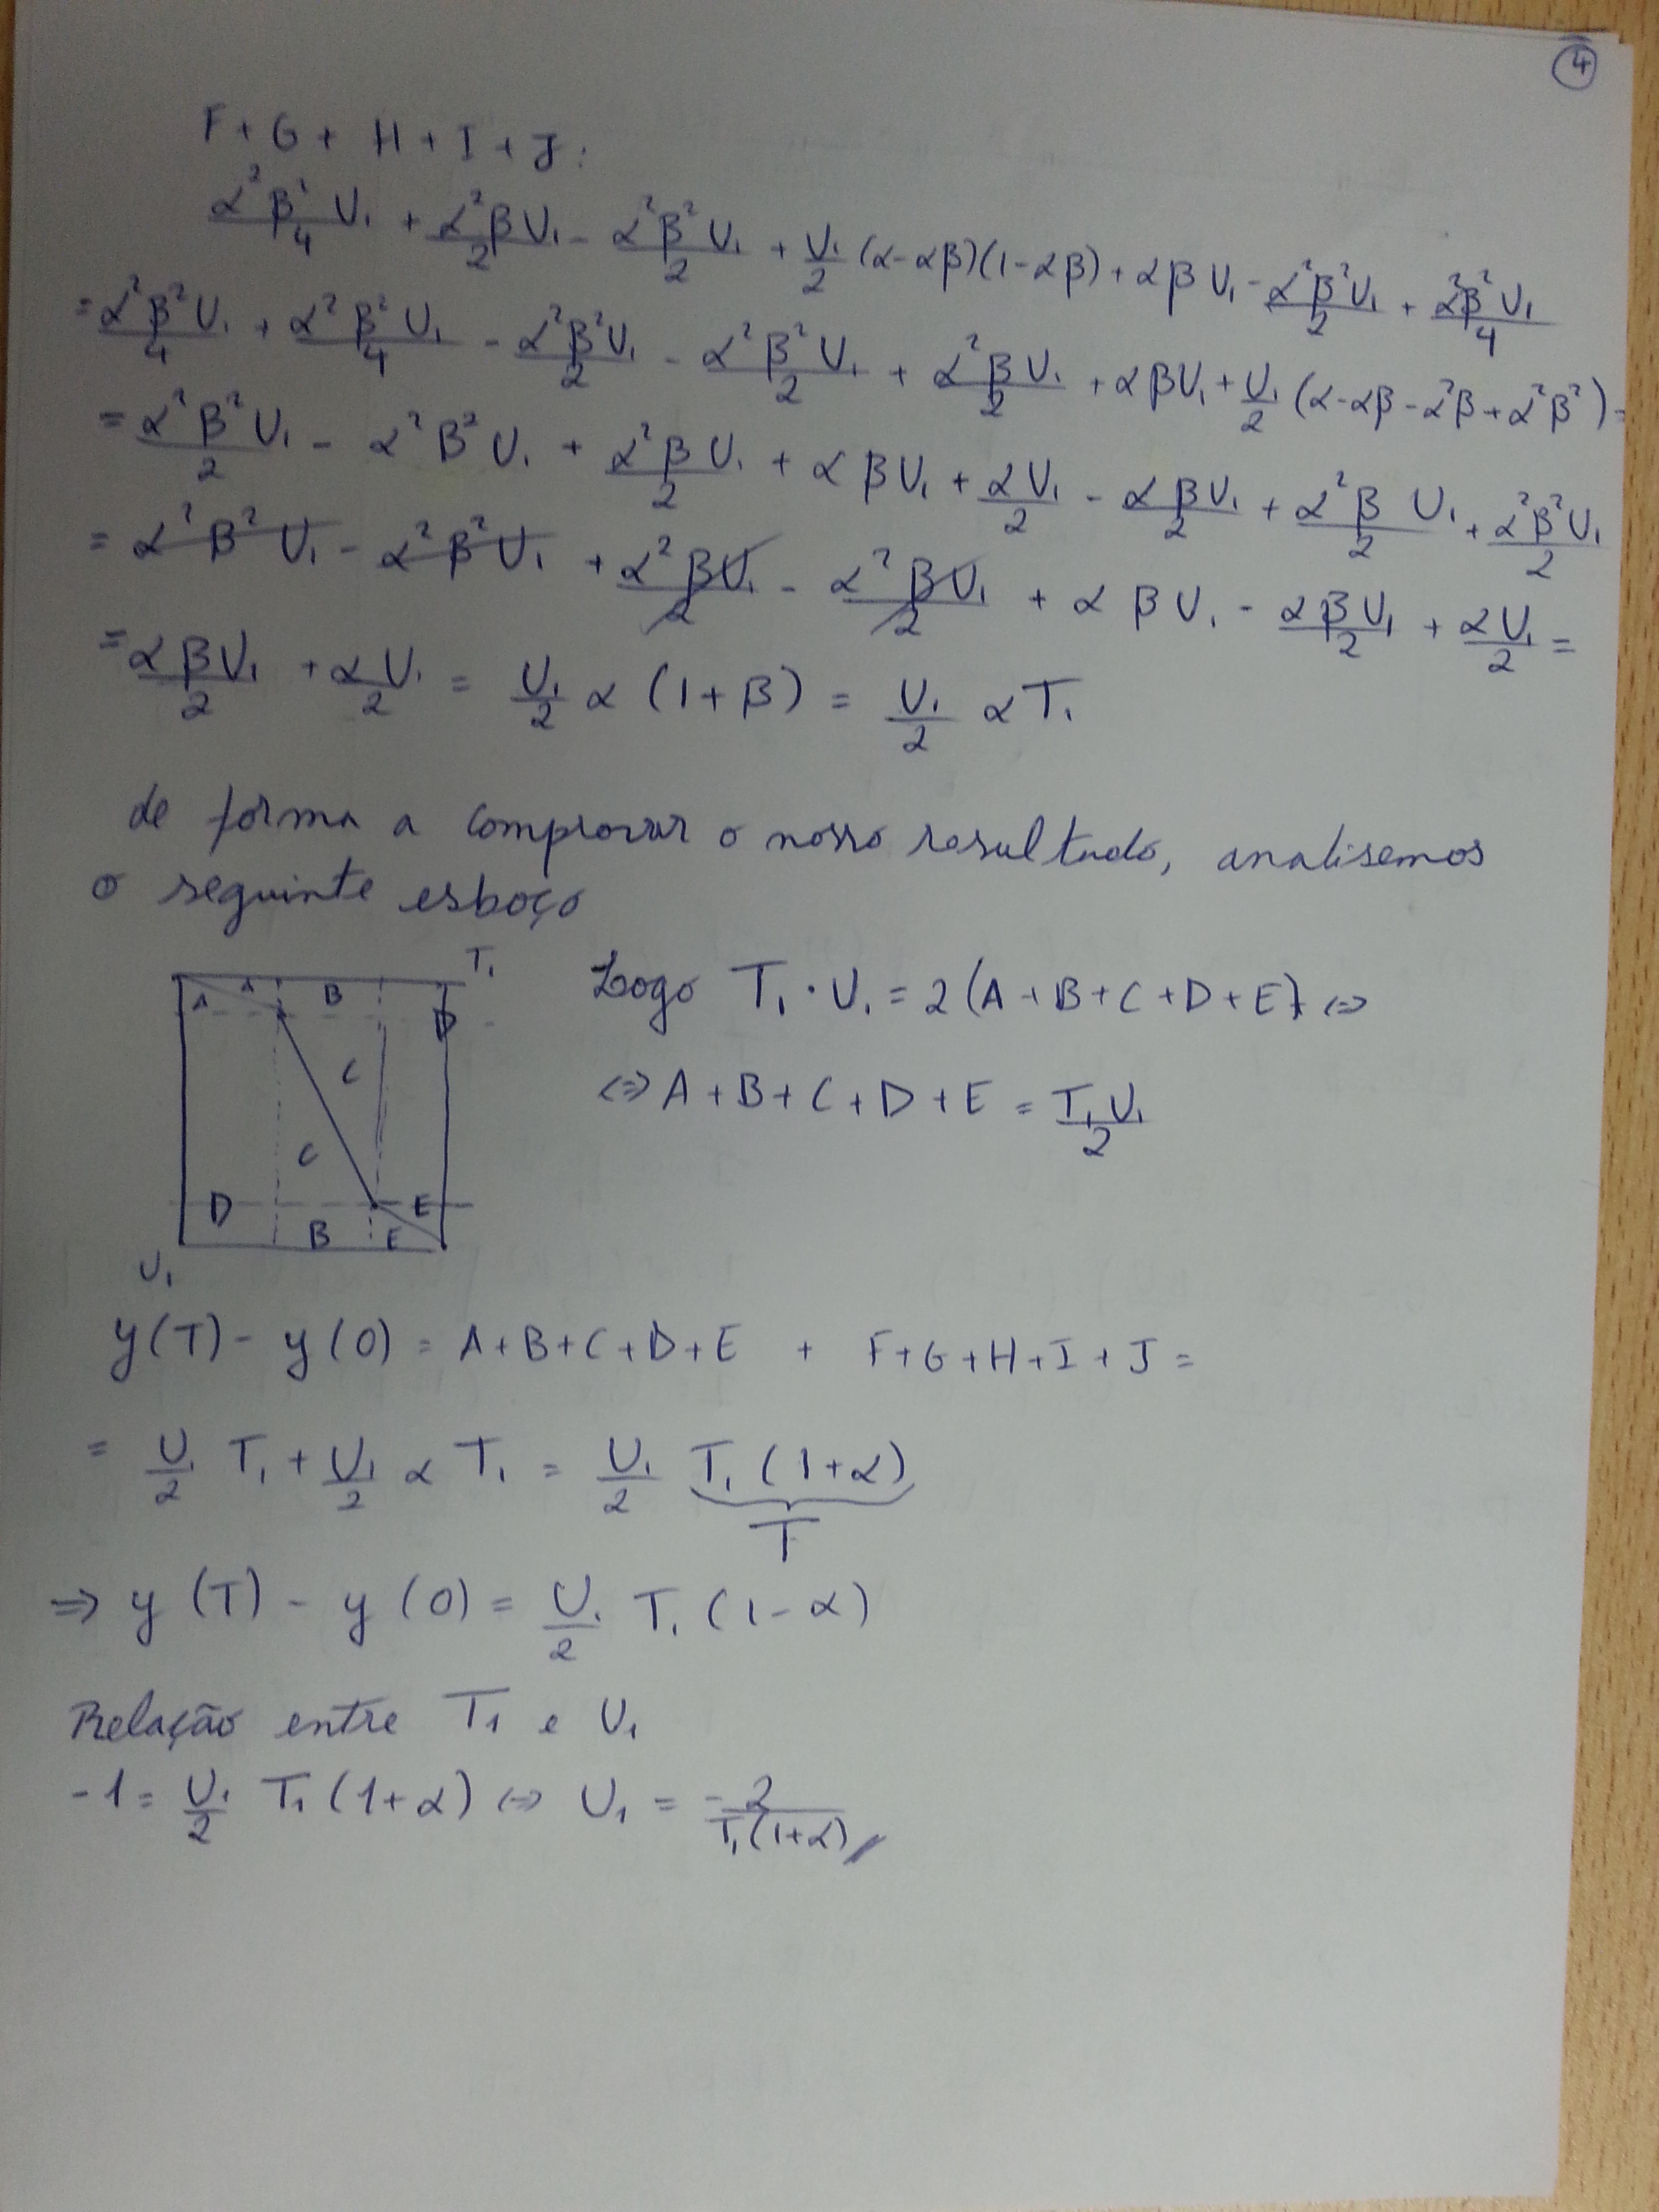 4
F + G + H + I + J :
α²β²/4 U₁ + α²βU₁/2 - α²β²U₁/2 + U₁/2 (α-αβ)(1-αβ) + αβU₁ - α²β²U₁/2 + α²β²U₁/4
= α²β²U₁/4 + α²β²U₁/4 - α²β²U₁/2 - α²β²U₁/2 + α²βU₁/2 + αβU₁ + U₁/2 (α-αβ-α²β+α²β²) =
= α²β²U₁/2 - α²β²U₁ + α²βU₁/2 + αβU₁ + αU₁/2 - αβU₁/2 + α²βU₁/2 + α²β²U₁/2
= α²β²U₁ - α²β²U₁ + α²βU₁/2 - α²βU₁/2 + αβU₁ - αβU₁/2 + αU₁/2 =
= αβU₁/2 + αU₁/2 = U₁/2 α (1+β) = U₁/2 αT₁
de forma a comprovar o nosso resultado, analisemos
o seguinte esboço
T₁
A A B D
C
C
D E
B E
U₁
Logo T₁ · U₁ = 2(A+B+C+D+E) ⇔
⇔ A+B+C+D+E = T₁U₁/2
y(T) - y(0) = A+B+C+D+E + F+G+H+I+J =
= U₁/2 T₁ + U₁/2 α T₁ = U₁/2 T₁(1+α)
T
⇒ y(T) - y(0) = U₁/2 T₁(1-α)
Relação entre T₁ e U₁
-1 = U₁/2 T₁(1+α) ⇔ U₁ = -2/T₁(1+α)